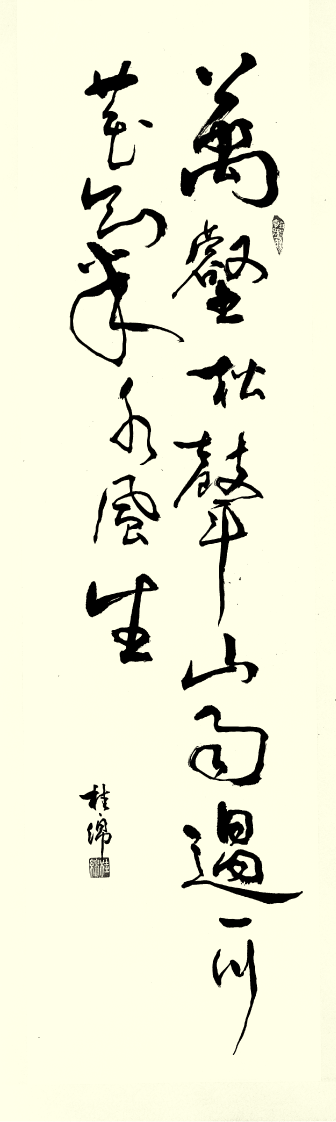 萬壑松聲山雨過一川
花氣水風生
桂綿